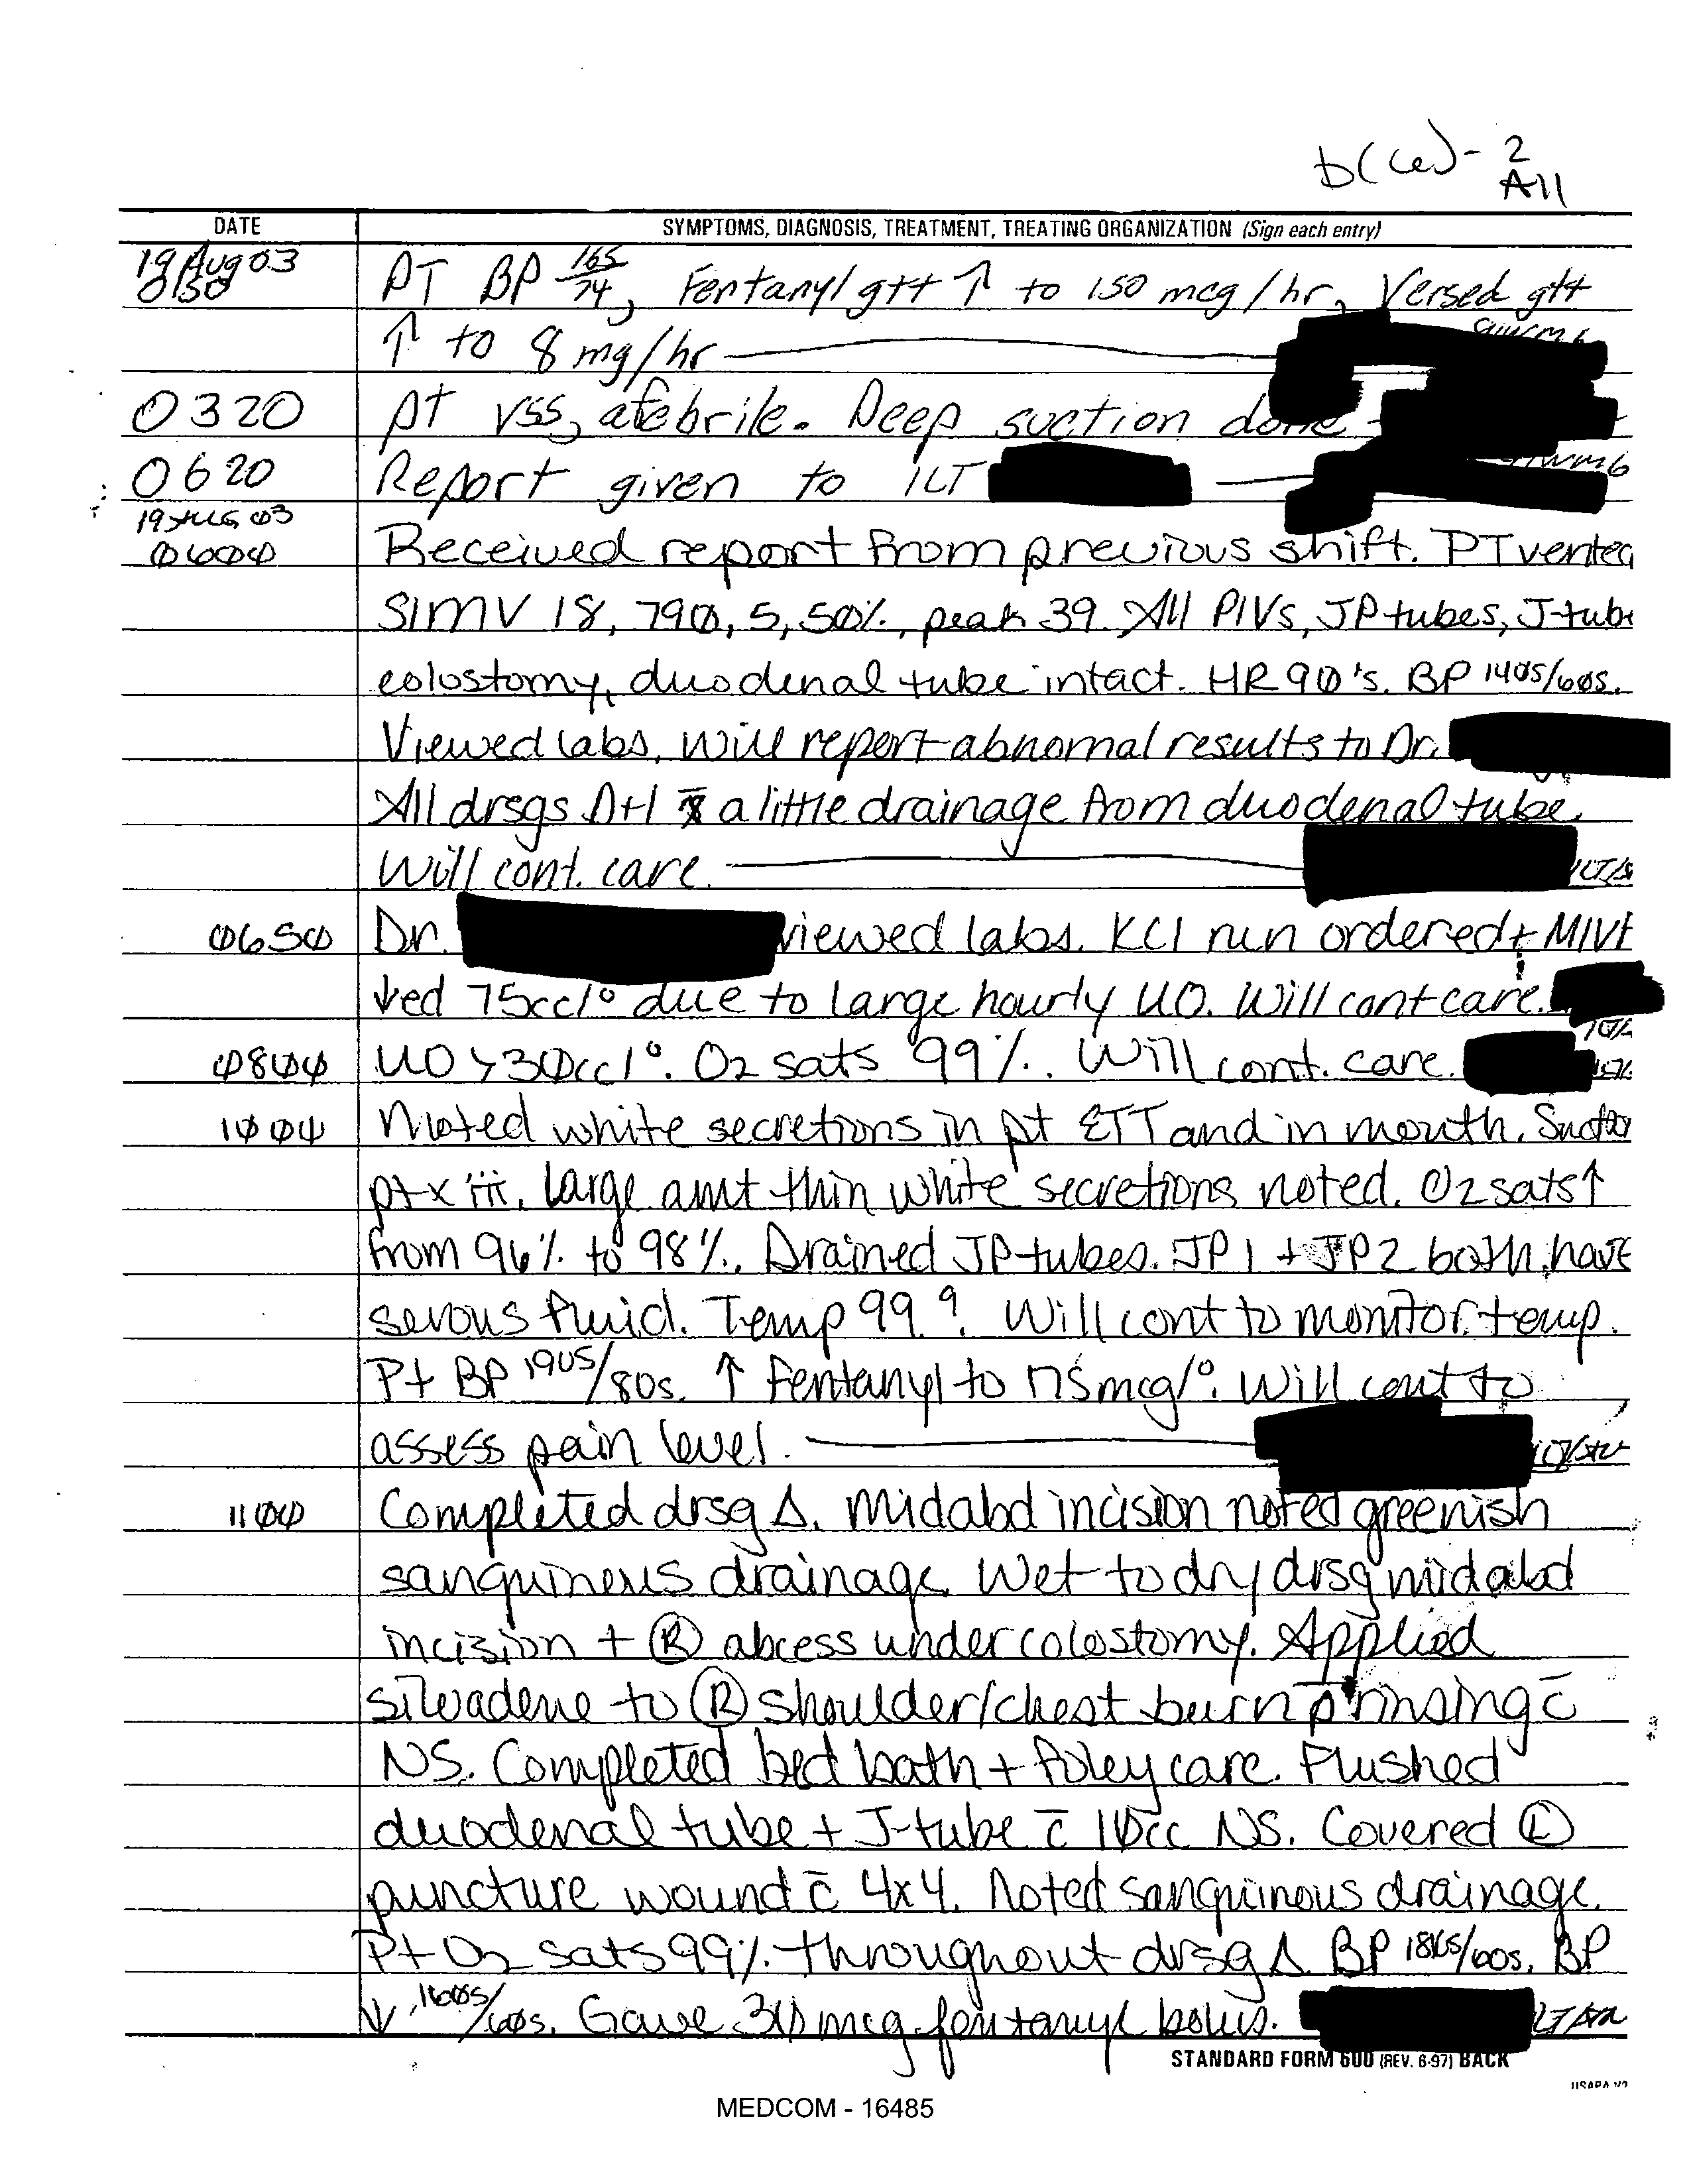 b(6)-2
All
DATE SYMPTOMS, DIAGNOSIS, TREATMENT, TREATING ORGANIZATION (Sign each entry)
19 Aug 03
0150 PT BP 165/74, Fentanyl gtt ↑ to 150 mcg/hr, Versed gtt
↑ to 8 mg/hr
0320 pt vss, afebrile. Deep suction done
0620 Report given to 1LT
19 AUG 03
0600 Received report from previous shift. PT vented
SIMV 18, 790, 5, 50%, peak 39. All PIVs, JP tubes, J-tube
colostomy, duodenal tube intact. HR 90's. BP 140s/60s.
Viewed labs. Will report abnomal results to Dr.
All drsgs D+I x̄ a little drainage from duodenal tube.
Will cont. care.
0650 Dr. viewed labs. KCl run ordered + MIVF
↓ed 75cc/° due to large hourly UO. Will cont care.
0800 UO >30cc/°. O2 sats 99%. Will cont. care.
1000 Noted white secretions in pt ETT and in mouth.
pt x iii. Large amt thin white secretions noted. O2 sats ↑
from 96% to 98%. Drained JP tubes. JP 1 + JP 2 both have
serous fluid. Temp 99.9. Will cont to monitor temp.
Pt BP 190s/80s. ↑ Fentanyl to 175mcg/°. Will cont to
assess pain level.
1100 Completed drsg Δ. Midabd incision noted greenish
sanguineus drainage. Wet to dry drsg midabd
incision + Ⓡ abcess under colostomy. Applied
silvadene to Ⓡ shoulder/chest burn p̄ rinsing c̄
NS. Completed bed bath + foley care. Flushed
duodenal tube + J-tube c̄ 10cc NS. Covered Ⓛ
puncture wound c̄ 4x4. Noted sanguinous drainage.
Pt O2 sats 99% throughout drsg Δ. BP 180s/60s. BP
↓ 160s/60s. Gave 30 mcg fentanyl bolus.
STANDARD FORM 600 (REV. 6-97) BACK
MEDCOM - 16485